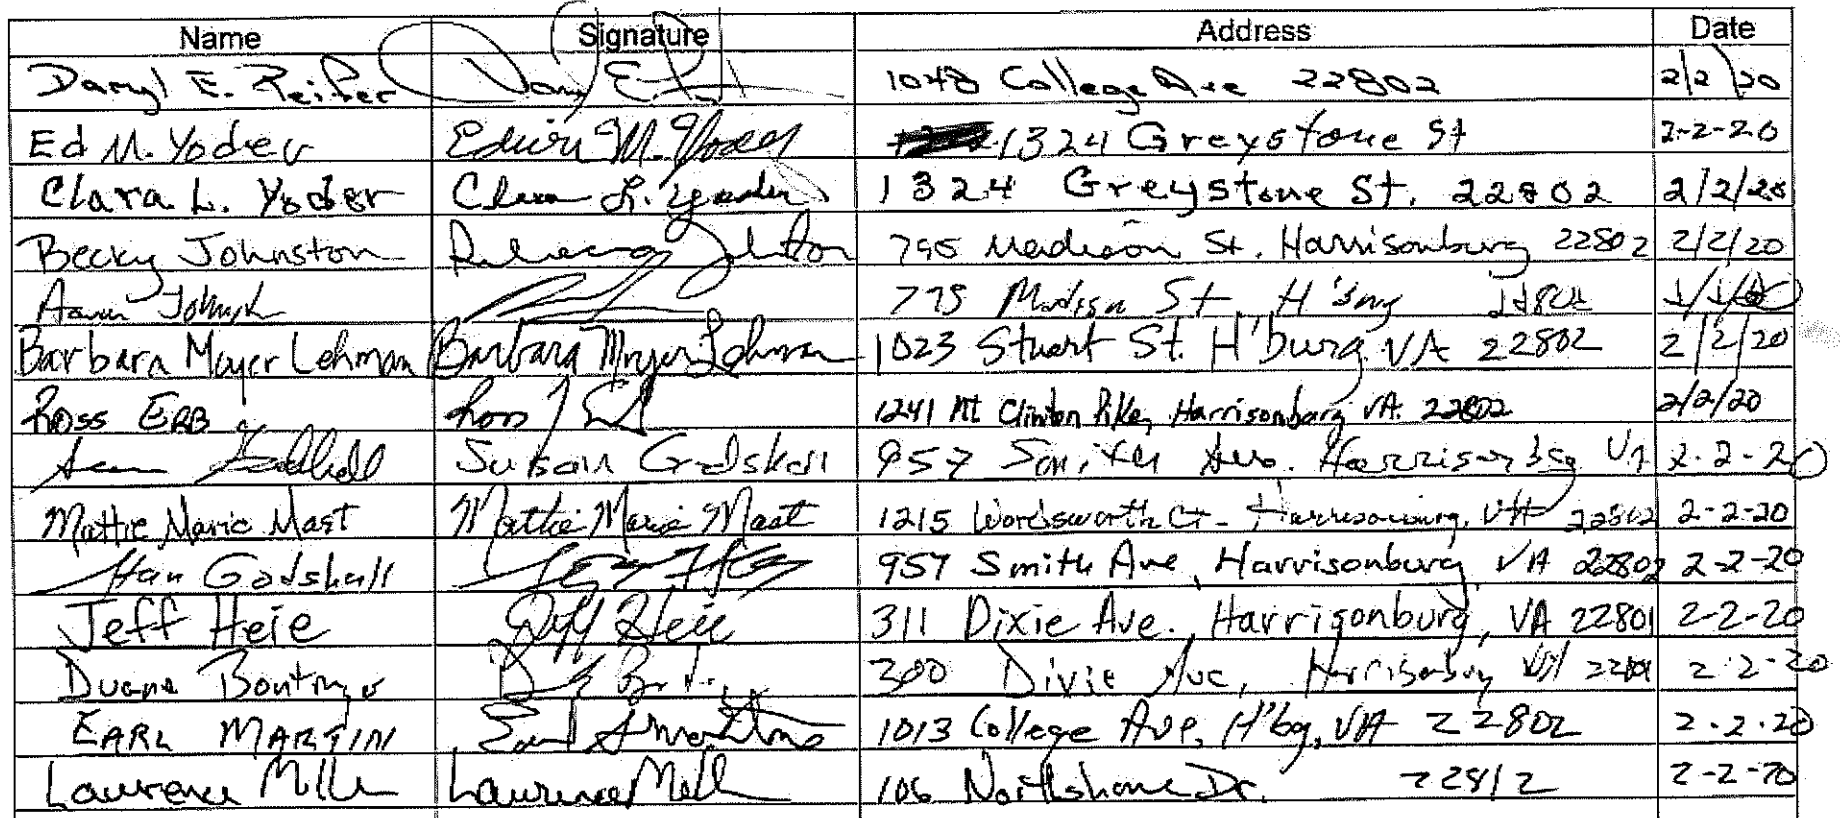 Name Signature Address Date
Daryl E. Peifer Daryl E. 1048 College Ave 22802 2/2/20
Ed M. Yoder Edwin M. Yoder 1324 Greystone St 2-2-20
Clara L. Yoder Clara L. Yoder 1324 Greystone St. 22802 2/2/20
Becky Johnston Rebecca Johnston 795 Madison St. Harrisonburg 22802 2/2/20
Aaron 775 Madison St, H'burg 22802
Barbara Moyer Lehman Barbara Moyer Lehman 1023 Stuart St. H'burg VA 22802 2/2/20
Ross ERB Ross 1241 Mt Clinton Pike, Harrisonburg VA 22802 2/2/20
Susan Godshall 957 Ave. Harrisonburg Va 2-2-20
Mattie Marie Mast Mattie Marie Mast 1215 Wordsworth Ct- Harrisonburg, VA 22802 2-2-20
Godshall 957 Smith Ave, Harrisonburg, VA 22802 2-2-20
Jeff Heie Jeff Heie 311 Dixie Ave., Harrisonburg, VA 22801 2-2-20
Duane 300 Dixie Ave, Harrisonburg VA 22801 2-2-20
EARL MARTIN Earl Martin 1013 College Ave, H'bg, VA 22802 2.2.20
Lawrence Lawrence 106 Northshore Dr. 22812 2-2-20